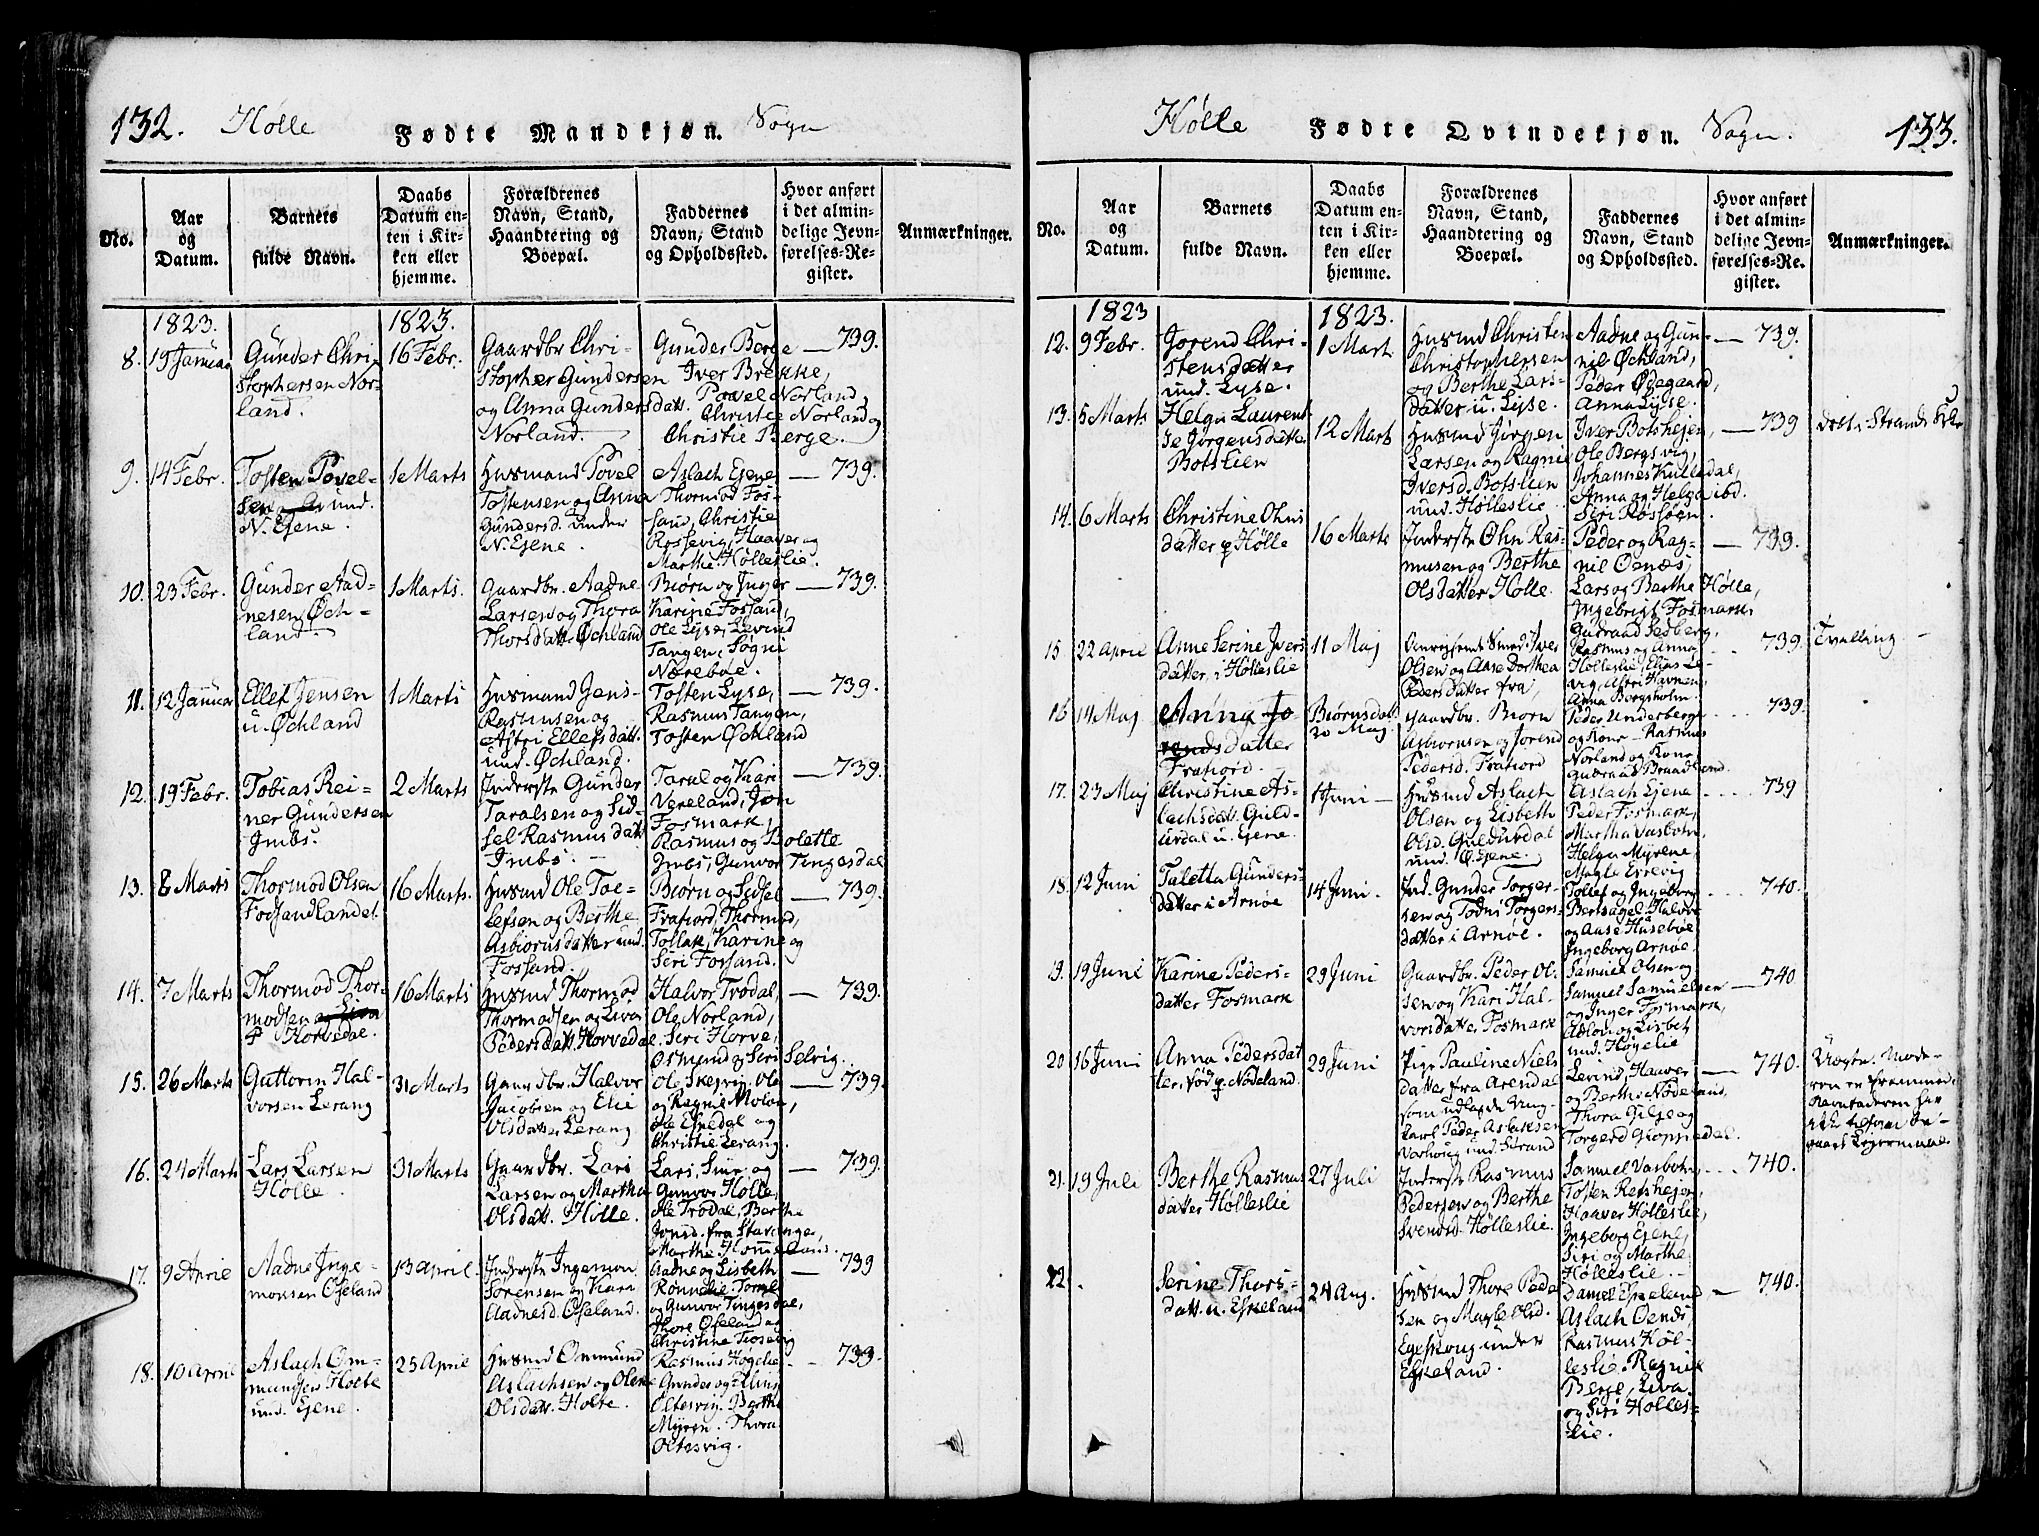 132. Hølle Fødte Mandkjøn. Sogn
No.
Aar og Datum.
Barnets fulde Navn.
Daabs Datum enten i Kirken eller hjemme.
Forældrenes Navn, Stand, Haandtering og Boepæl.
Faddernes Navn, Stand og Opholdssted.
Hvor anført i det almindelige Jevnførelses-Register.
Anmærkninger.
1823. 1823.
8. 19 Januar
Gunder Chri-
stophersen Nor-
land.
16 Febr.
Gaardbr Chri-
stopher Gundersen
og Anna Gundersdatt.
Norland.
Gunder Berge
Iver Brekke,
Povel Norland,
Christie Norland og
Christie Berge.
739.
9. 14 Febr.
Tosten Povel-
sen und.
N. Ejene.
1 Marts
Husmand Povel
Tostensen og Anna
Gundersd. under
N. Ejene.
Aslach Ejene
Thormod Fos-
sand, Christie
Rossevig, Haaver og
Marthe Hølleslie.
739.
10. 23 Febr.
Gunder Aad-
nesen Øch-
land.
1 Marts.
Gaardbr. Aadne
Larsen og Thora
Thorsdatt. Øchland
Biørn og Inger
Karine Fossand,
Ole Lyse, Levind
Tangen, Sogni
Nøreboe.
739.
11. 12 Januar
Ellef Jensen
u. Øchland
1 Marts
Husmand Jens
Rasmusen og
Astri Ellefsdatt.
und. Øchland.
Tosten Lyse,
Rasmus Tangen,
Tosten Øchland
739.
12. 19 Febr.
Tobias Rei-
ner Gundersen
Imbs.
2 Marts
Inderste Gunder
Taralsen og Sid-
sel Rasmusdatt
Imbs.
Taral og Kari
Vereland, Jon
Fosmark,
Rasmus og Bolette
Imbs, Gunvor Tingesdal
739.
13. 8 Marts
Thormod Olsen
Fossandlandet
16 Marts.
Husmd Ole Toe-
lefsen og Berthe
Asbiørnsdatter und.
Fossand.
Biørn og Sidsel
Fratiord, Thormod,
Tollak, Karine og
Siri Fossand.
739.
14. 7 Marts
Thormod Thor-
modsen og Liva
Horvedal.
16 Marts
Husmd Thormod
Thormodsen og Liva
Pedersdatt. Horvedal.
Halvor Trodal,
Ole Norland,
Siri Horve,
Osmund og Siri Selvig.
739.
15. 26 Marts
Guttorm Hal-
vorsen Lerang
31 Marts
Gaardbr. Halvor
Jacobsen og Elie
Olsdatter Lerang
Ole Skejvig, Ole
og Ragnil Molon,
Ole Eskedal og
Christie Lerang.
739.
16. 24 Marts
Lars Larsen
Hølle.
31 Marts
Gaardbr. Lars
Larsen og Martha
Olsdatt. Hølle.
Lars, Siur, og
Gunvor Hølle,
Ole Trodal, Berthe
Jonsd. fra Stavanger,
Marthe Hommeland.
739.
17. 9 April
Aadne Inge-
monsen Oseland
13 April.
Inderste Ingemon
Sørensen og Kari
Aadnesd. Oseland.
Aadne og Lisbeth
Rønnelie, Torgel
og Gunvor Tingesdal,
Thore Oseland og
Christine Tiosevig
739
18. 10 April
Aslach Om-
mundsen Holte
und. Ejene.
25 April
Husmd Ommund
Aslachsen og Olene
Olsdatt. Holte.
Rasmus Høgelie
Gundes og Elling
Oltesvig, Berthe
Myren, Thora
Oltesvig.
739.
Hølle Fødte Qvindekjøn. Sogn. 133.
No.
Aar og Datum.
Barnets fulde Navn.
Daabs Datum enten i Kirken eller hjemme.
Forældrenes Navn, Stand, Haandtering og Boepæl.
Faddernes Navn, Stand og Opholdssted.
Hvor anført i det almindelige Jevnførelses-Register.
Anmærkninger.
1823 1823.
12. 9 Febr.
Jorend Chri-
stensdatter
und. Lyse.
1 Mart.
Husmd Christen
Christophersen
og Berthe Lars-
datter u. Lyse.
Aadne og Gun-
nil Øchland,
Peder Ødegaard,
Anna Lyse.
739.
13. 5 Marts
Helga Laurent-
se Jørgensdatter
Botslien
12 Marts
Husmd Jørgen
Larsen og Ragnil
Iversd. Botslien
und. Hølleslie.
Iver Botshejen,
Ole Bergsvig,
Johannes Kulledal,
Anna og Helga ibd.
Siri Rossøen.
739
Døbt i Strands Kirke
14. 6 Marts
Christine Ohns
datter Hølle
16 Marts
Inderste Ohn Ras-
musen og Berthe
Olsdatter Hølle.
Peder og Rag-
nil Oenæs,
Lars og Berthe Hølle,
Ingebrigt Fosmark.
739.
15 22 April
Anne Serine Ivers
datter, i Hølleslie
11 Maj
Smed Iver
Olsen og Aase Dorthea
Pedersdatter fra,
Gudraad Sedberg,
Rasmus og Anna
Hølleslie, Elias Le-
vig, Astri Havnen,
Anna Borgsholm.
739.
Tvilling
16 14 Maj
Anna Jo-
rendsdatter
Fratiord.
Biørnsdat.
20 Maj
Gaardbr. Biørn
Asbiørnsen og Jorend
Pedersd. Fratiord
Peder Underberge
og Kone. Rasmus
Norland og Kone
Gudra ad Braadland.
739.
17. 23 Maj
Christine As-
lachsdatt. Guld-
urdal u. Ejene.
1 Juni
Husmd Aslach
Olsen og Lisbeth
Olsd. Guldurdal
und. Ejene.
Aslach Ejene
Peder Fosmark,
Martha Vasbotn,
Helga Myrene,
Magla Errevig
739
18. 12 Juni
Taletta Gunders-
datter i Arnøe
14 Juni.
Ind. Gunder Torger-
sen og Todni Torgers-
datter i Arnøe.
Tollef og Ingeborg
Bertsagel, Halvor
og Aase Huseboe
Ingeborg Arnøe.
740.
19. 19 Juni
Karine Peders-
datter Fosmark
29 Juni
Gaardbr. Peder Ol-
sen og Kari Hal-
vorsdatter Fosmark
Samuel Olsen og
Samuel Samuelsen
og Inger Fosmark,
Adlon og Lisbet
und. Høgelie
740
20 16 Juni
Anna Pedersdat
ter, fød p. Nødeland.
29 Juni
Pige Pauline Niels
datter fra Arendal
som udlagde Ung-
karl Peder Aslaksen
Varhoug und. Sørand
Levind, Haaver
og Berthe Nødeland,
Thora Gilje og
Torgerd Gioppedal.
740.
Uægte. Mode-
ren er fremmed.
Barnfaderen har
ikke tilforn be-
gaaet Leiermaal.
21. 19 Juli
Berthe Rasmus
datter Hølleslie
27 Juli
Inderste Rasmus
Pedersen og Berthe
Svendsd. Hølleslie.
Samuel Vasbotn,
Tosten Retshejen,
Haaver Hølleslie,
Ingeborg Ejene,
Siri og Marthe
Hølleslie.
740.
22.
Serine Thors-
datt. u. Eskeland
24 Aug.
Husmd Thore Peder
sen og Magle Olsd.
Egeskoug under
Eskeland.
Daniel Eskeland
Aslach Oends
Rasmus Høl-
leslie, Ragnil
Berge, Liva
og Siri Hølles-
lie.
740.